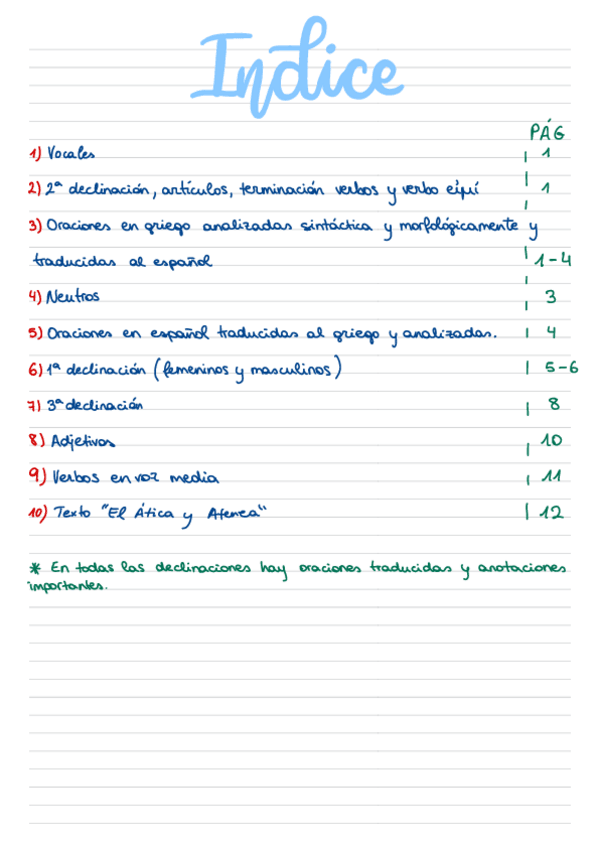 Indice
PÁG
1) Vocales 1
2) 2ª declinación, artículos, terminación verbos y verbo εἰμί 1
3) Oraciones en griego analizadas sintáctica y morfológicamente y
traducidas al español 1-4
4) Neutros 3
5) Oraciones en español traducidas al griego y analizadas. 4
6) 1ª declinación (femeninos y masculinos) 5-6
7) 3ª declinación 8
8) Adjetivos 10
9) Verbos en voz media 11
10) Texto "El Ática y Atenea" 12
* En todas las declinaciones hay oraciones traducidas y anotaciones
importantes.